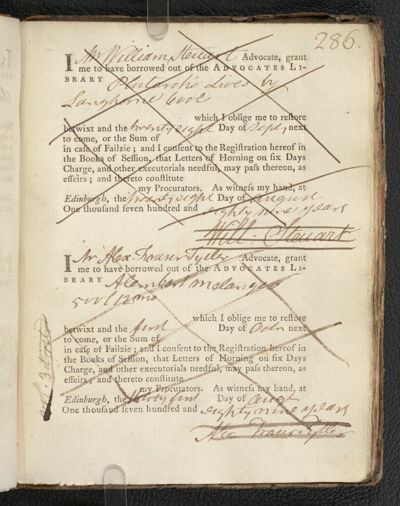 286.
I Mr William Steuart Advocate, grant
me to have borrowed out of the ADVOCATES LI-
BRARY Plutarchs Lives by
Langhorne 6vol
which I oblige me to reſtore
betwixt and the twenty eight Day of Sept, next
to come, or the Sum of
in caſe of Failzie; and I conſent to the Regiſtration hereof in
the Books of Seſſion, that Letters of Horning on ſix Days
Charge, and other executorials needful, may paſs thereon, as
effeirs; and thereto conſtitute
my Procurators. As witneſs my hand, at
Edinburgh, the twenty eight Day of August
One thouſand ſeven hundred and eighty nine years
Will. Steuart
I Mr Alex. Fraser Tytler Advocate, grant
me to have borrowed out of the ADVOCATES LI-
BRARY Alembert melanges
5vol 12mo
which I oblige me to reſtore
betwixt and the first Day of Octr next
to come, or the Sum of
in caſe of Failzie; and I conſent to the Regiſtration hereof in
the Books of Seſſion, that Letters of Horning on ſix Days
Charge, and other executorials needful, may paſs thereon, as
effeirs; and thereto conſtitute
my Procurators. As witneſs my hand, at
Edinburgh, the thirty first Day of Augt
One thouſand ſeven hundred and eighty nine years
Alex Fraser Tytler